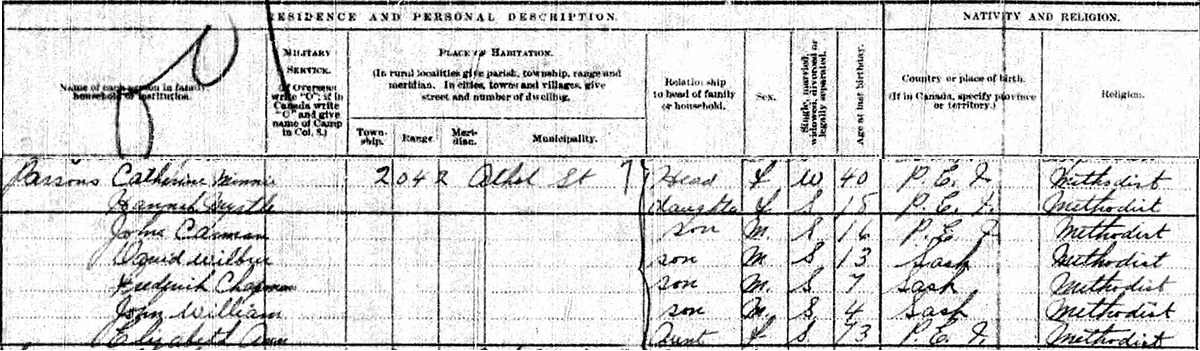 RESIDENCE AND PERSONAL DESCRIPTION.
NATIVITY AND RELIGION.
Name of each person in family, household or institution.
MILITARY SERVICE.
If Overseas write "O"; if in Canada write "C" and give name of Camp in Col. 8.)
PLACE OF HABITATION.
(In rural localities give parish, township, range and meridian. In cities, towns and villages, give street and number of dwelling.
Township.
Range
Meridian.
Municipality.
Relationship to head of family or household.
Sex.
Single, married, widowed, divorced or legally separated.
Age at last birthday.
Country or place of birth.
(If in Canada, specify province or territory.)
Religion.
Parsons Catherine Minnie 2042 Athol St Head F W 40 P. E. I. Methodist
Hannah Myrtle daughter F S 18 P. E. I. Methodist
John Carman son M. S 16 P. E. I Methodist
David Wilbur son M. S 13 Sask Methodist
Frederick Chapman son M. S 7 Sask Methodist
John William son M. S 4 Sask Methodist
Elizabeth Ann Aunt F S 73 P. E. I. Methodist